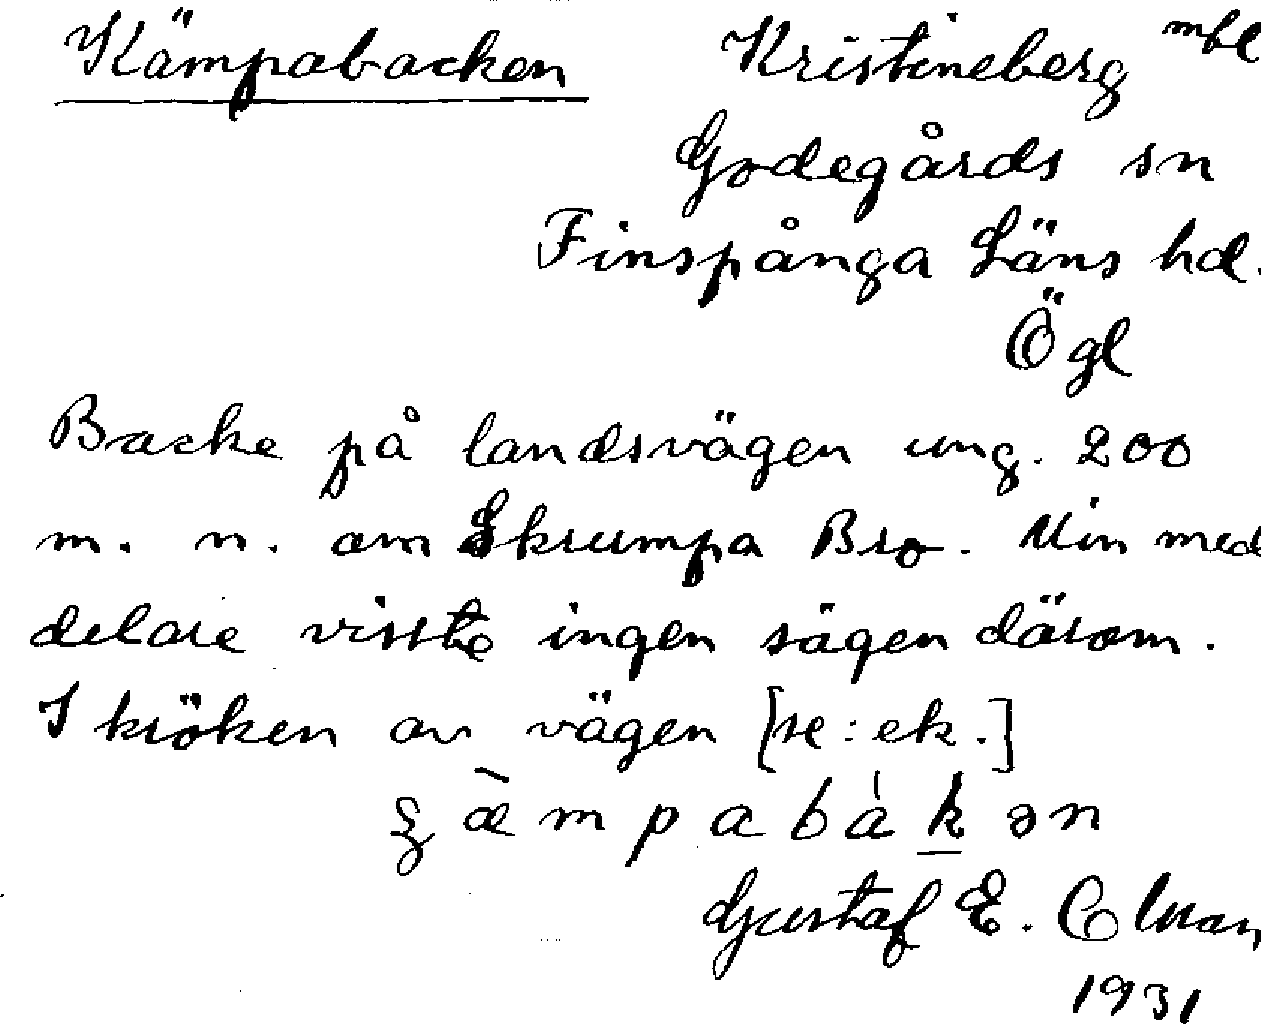 Kämpabacken Kristineberg mbl
Godegårds sn
Finspånga Läns hd.
Ögl
Backe på landsvägen ung. 200
m. n. om Skrumpa Bro. Min med
delare visste ingen sägen därom.
I kröken av vägen [se: ek.]
Gustaf E. Olman
1931